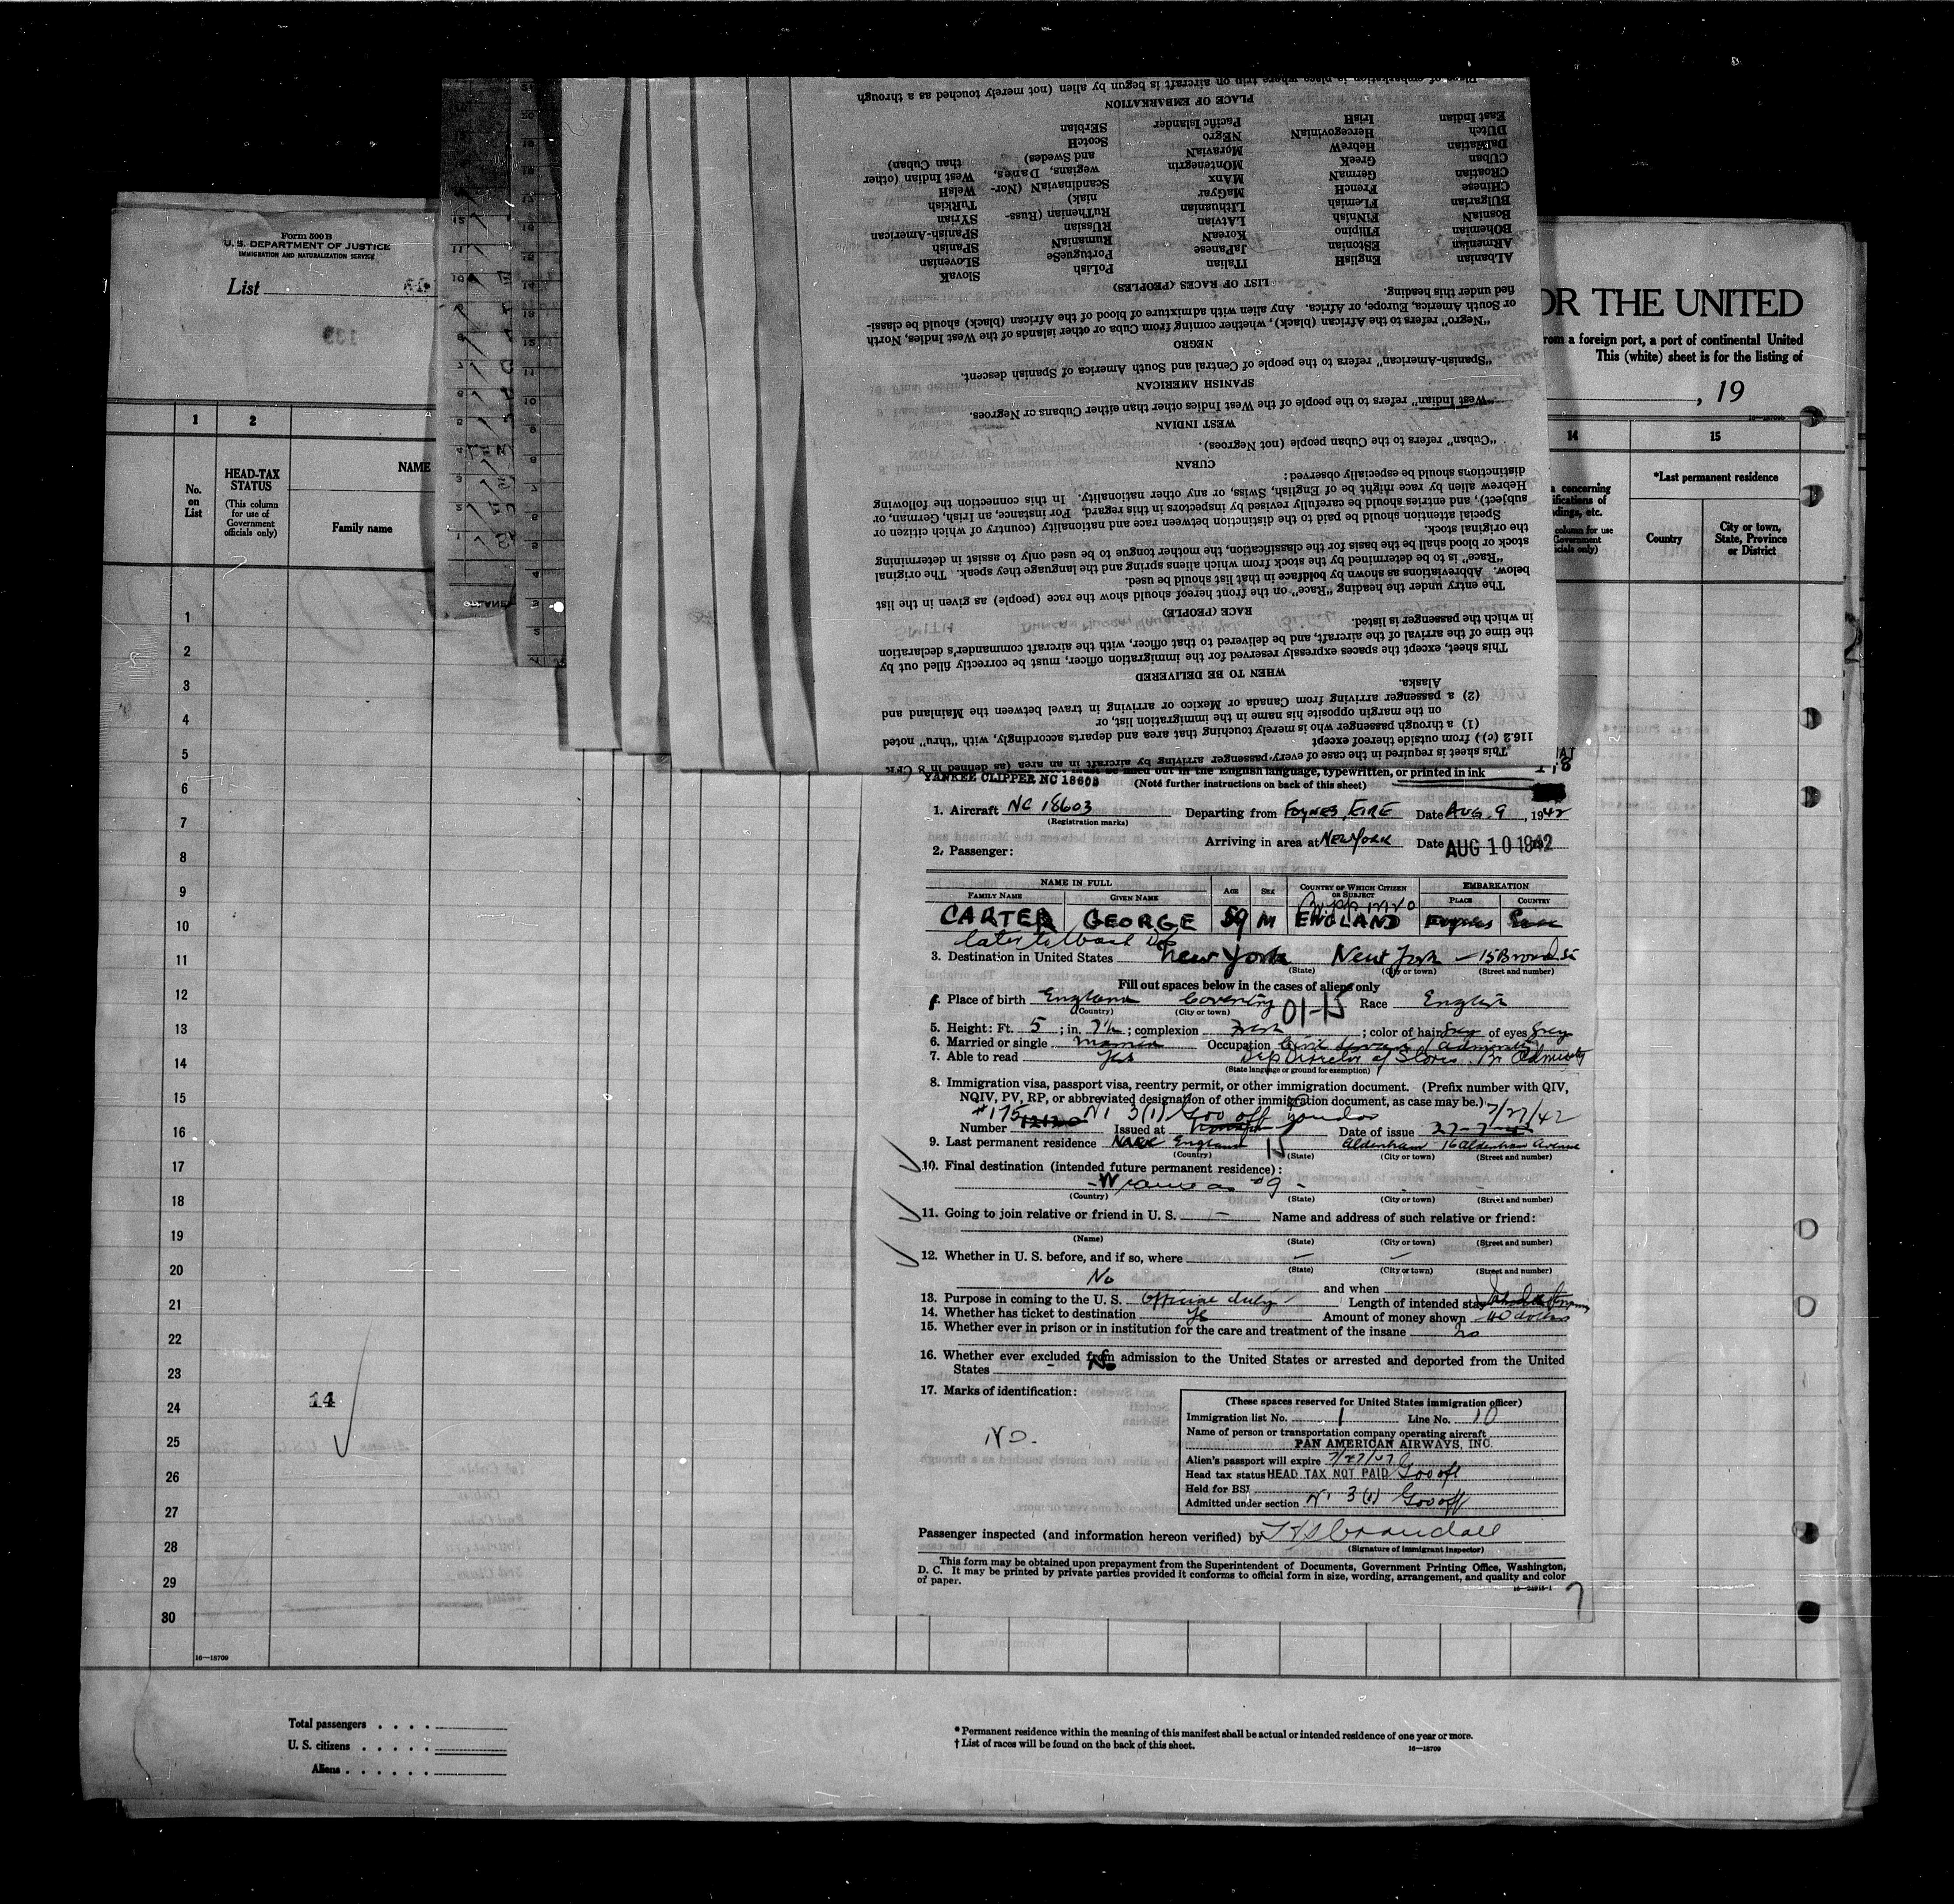 Form 500 B
U. S. DEPARTMENT OF JUSTICE
IMMIGRATION AND NATURALIZATION SERVICE
List
1 2
No. on List
HEAD-TAX STATUS
(This column for use of Government officials only)
NAME
Family name
1
2
3
4
5
6
7
8
9
10
11
12
13
14
15
16
17
18
19
20
21
22
23
24
25
26
27
28
29
30
14
16—18709
Total passengers
U. S. citizens
Aliens
OR THE UNITED
rom a foreign port, a port of continental United
This (white) sheet is for the listing of
, 19
14 15
*Last permanent residence
Country
City or town, State, Province or District
This sheet is required in the case of every passenger arriving by aircraft in an area (as defined in 8 CFR
116.2 (c)) from outside thereof except
(1) a through passenger who is merely touching that area and departs accordingly, with "thru" noted
on the margin opposite his name in the immigration list, or
(2) a passenger arriving from Canada or Mexico or arriving in travel between the Mainland and
Alaska.
WHEN TO BE DELIVERED
This sheet, except the spaces expressly reserved for the immigration officer, must be correctly filled out by
the time of the arrival of the aircraft, and be delivered to that officer, with the aircraft commander's declaration
in which the passenger is listed.
RACE (PEOPLE)
The entry under the heading "Race" on the front hereof should show the race (people) as given in the list
below. Abbreviations as shown by boldface in that list should be used.
"Race" is to be determined by the stock from which aliens spring and the language they speak. The original
stock or blood shall be the basis for the classification, the mother tongue to be used only to assist in determining
the original stock.
Special attention should be paid to the distinction between race and nationality (country of which citizen or
subject), and entries should be carefully revised by inspectors in this regard. For instance, an Irish, German, or
Hebrew alien by race might be of English, Swiss, or any other nationality. In this connection the following
distinctions should be especially observed:
CUBAN
"Cuban" refers to the Cuban people (not Negroes).
WEST INDIAN
"West Indian" refers to the people of the West Indies other than either Cubans or Negroes.
SPANISH AMERICAN
"Spanish-American" refers to the people of Central and South America of Spanish descent.
NEGRO
"Negro" refers to the African (black), whether coming from Cuba or other islands of the West Indies, North
or South America, Europe, or Africa. Any alien with admixture of blood of the African (black) should be classi-
fied under this heading.
LIST OF RACES (PEOPLES)
AlBanian EngliSH ITalian PoLish SlovaK
ARmenian EStonian JaPanese PortugueSe SLovenian
BOhemian FIlipino KoreaN RumaniaN SPanish
BosniaN FiNnish LAtvian RUssian SPanish-American
BUlgarian FLemish LIthuanian RuThenian (Russ- SYrian
CHinese FrencH MaGyar niak) TurKish
CRoatian GermaN MAnx ScandinaviaN (Nor- WelsH
CUban GreeK MOntenegrin wegians, Danes, West Indian (other
DalMatian HebreW MoraviaN and Swedes) than Cuban)
DUtch HercegoviniaN NEgro ScotcH
East Indian IrisH Pacific Islander SErbian
PLACE OF EMBARKATION
Place of embarkation is place where trip on aircraft is begun by alien (not merely touched as a through
YANKEE CLIPPER NC 18603
out in the English language, typewritten, or printed in ink
(Note further instructions on back of this sheet)
1. Aircraft NC 18603 Departing from FOYNES, EIRE Date AUG. 9, 1942
(Registration marks)
Arriving in area at NEW YORK Date AUG 10 1942
2. Passenger:
NAME IN FULL AGE SEX COUNTRY OF WHICH CITIZEN OR SUBJECT EMBARKATION
FAMILY NAME GIVEN NAME PLACE COUNTRY
CARTER GEORGE 59 M ENGLAND Foynes Eire
3. Destination in United States New York New York 15 Broad St
(State) (City or town) (Street and number)
Fill out spaces below in the cases of aliens only
4. Place of birth England Coventry 01-15 Race English
(Country) (City or town)
5. Height: Ft. 5; in. 7½; complexion Fresh; color of hair Grey of eyes Grey
6. Married or single Married Occupation Civil Servant (Admiralty)
7. Able to read Yes Dep Director of Stores. Br Admiralty
(State language or ground for exemption)
8. Immigration visa, passport visa, reentry permit, or other immigration document. (Prefix number with QIV,
NQIV, PV, RP, or abbreviated designation of other immigration document, as case may be.) 7/27/42
#175 N1 3(1) Gov off London
Number Issued at Date of issue
9. Last permanent residence England Aldenham 16 Aldenham Avenue
(Country) (State) (City or town) (Street and number)
10. Final destination (intended future permanent residence):
same as #9
(Country) (State) (City or town) (Street and number)
11. Going to join relative or friend in U. S. Name and address of such relative or friend:
(Name) (State) (City or town) (Street and number)
12. Whether in U. S. before, and if so, where
(State) (City or town) (Street and number)
No and when
13. Purpose in coming to the U. S. Official duty Length of intended stay
14. Whether has ticket to destination Yes Amount of money shown 40 dollars
15. Whether ever in prison or in institution for the care and treatment of the insane No
16. Whether ever excluded from admission to the United States or arrested and deported from the United
States No
17. Marks of identification:
NO.
(These spaces reserved for United States immigration officer)
Immigration list No. 1 Line No. 10
Name of person or transportation company operating aircraft
PAN AMERICAN AIRWAYS, INC.
Alien's passport will expire
Head tax status HEAD TAX NOT PAID Gov off
Held for BSI
Admitted under section N1 3(1) Gov off
Passenger inspected (and information hereon verified) by
(Signature of immigrant inspector)
This form may be obtained upon prepayment from the Superintendent of Documents, Government Printing Office, Washington,
D. C. It may be printed by private parties provided it conforms to official form in size, wording, arrangement, and quality and color
of paper.
7
* Permanent residence within the meaning of this manifest shall be actual or intended residence of one year or more.
† List of races will be found on the back of this sheet.
16—18709